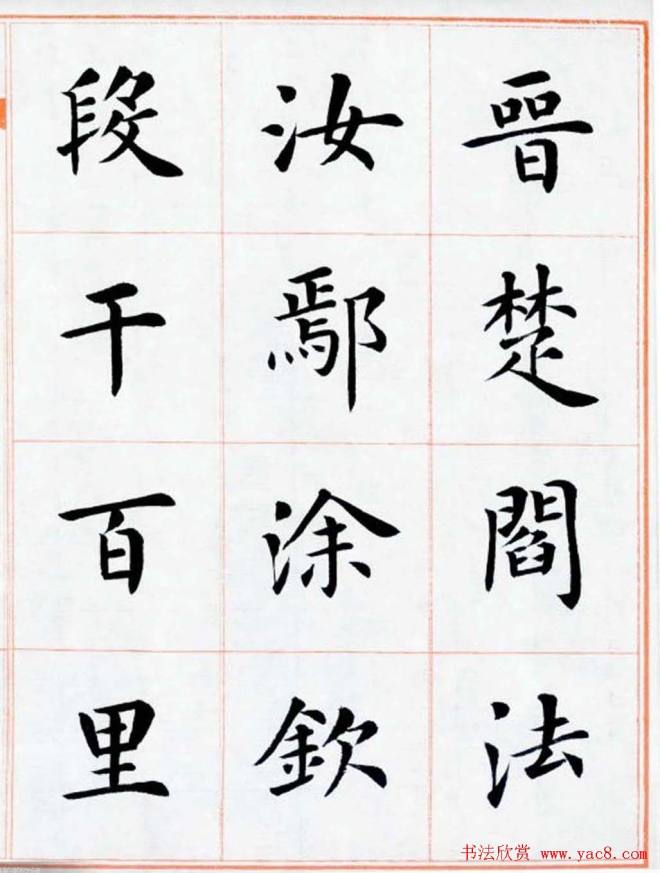 晉楚閻法
汝鄢涂欽
段干百里
书法欣赏 www.yac8.com